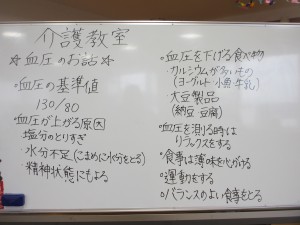 介護教室
☆血圧のお話☆
・血圧の基準値
130/80
・血圧が上がる原因
塩分のとりすぎ
・水分不足(こまめに水分をとる)
・精神状態にもよる
・血圧を下げる食べ物
・カルシウムが多いもの
(ヨーグルト・小魚・牛乳)
大豆製品
(納豆 豆腐)
・血圧を測る時は
リラックスをする
○食事は薄味を心がける
○運動をする
○バランスのよい食事をとる